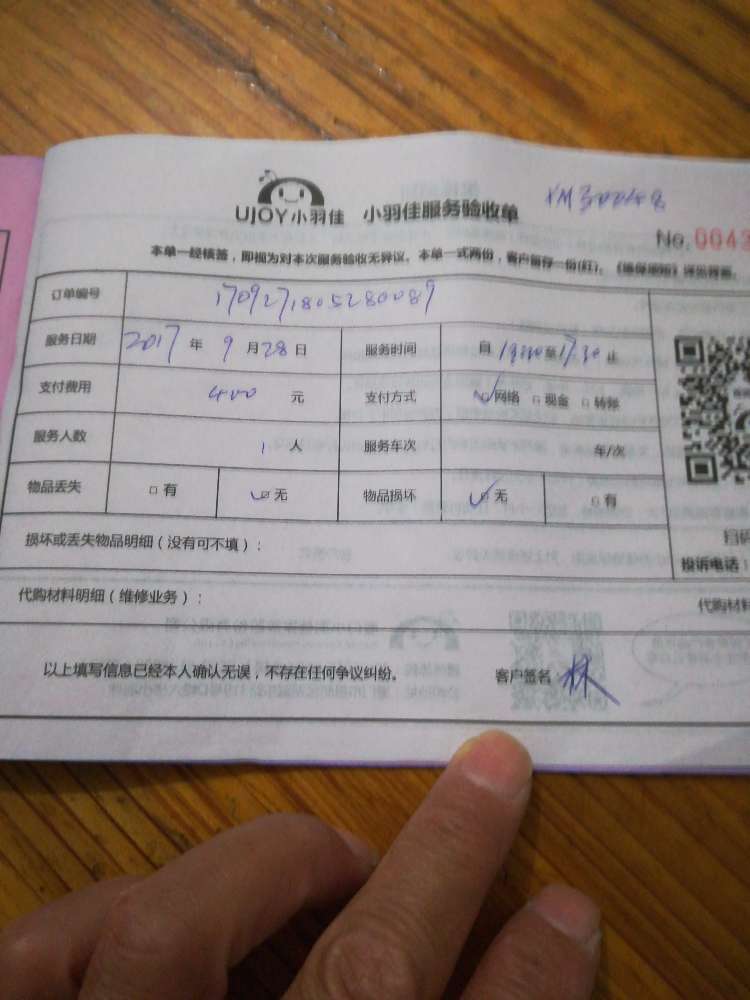 UJOY小羽佳 小羽佳服务验收单 XM300488
No.0043
本单一经核签，即视为对本次服务验收无异议。本单一式两份，客户留存一份(红)。
订单编号 1709271805280089
服务日期 2017 年 9 月 28 日 服务时间 自 至17:30 止
支付费用 400 元 支付方式 ☑网络 □现金 □转账
服务人数 1 人 服务车次 车/次
物品丢失 □有 ☑无 物品损坏 ☑无 □有
损坏或丢失物品明细（没有可不填）：
扫码
投诉电话：
代购材料明细（维修业务）： 代购材料
以上填写信息已经本人确认无误，不存在任何争议纠纷。 客户签名：林